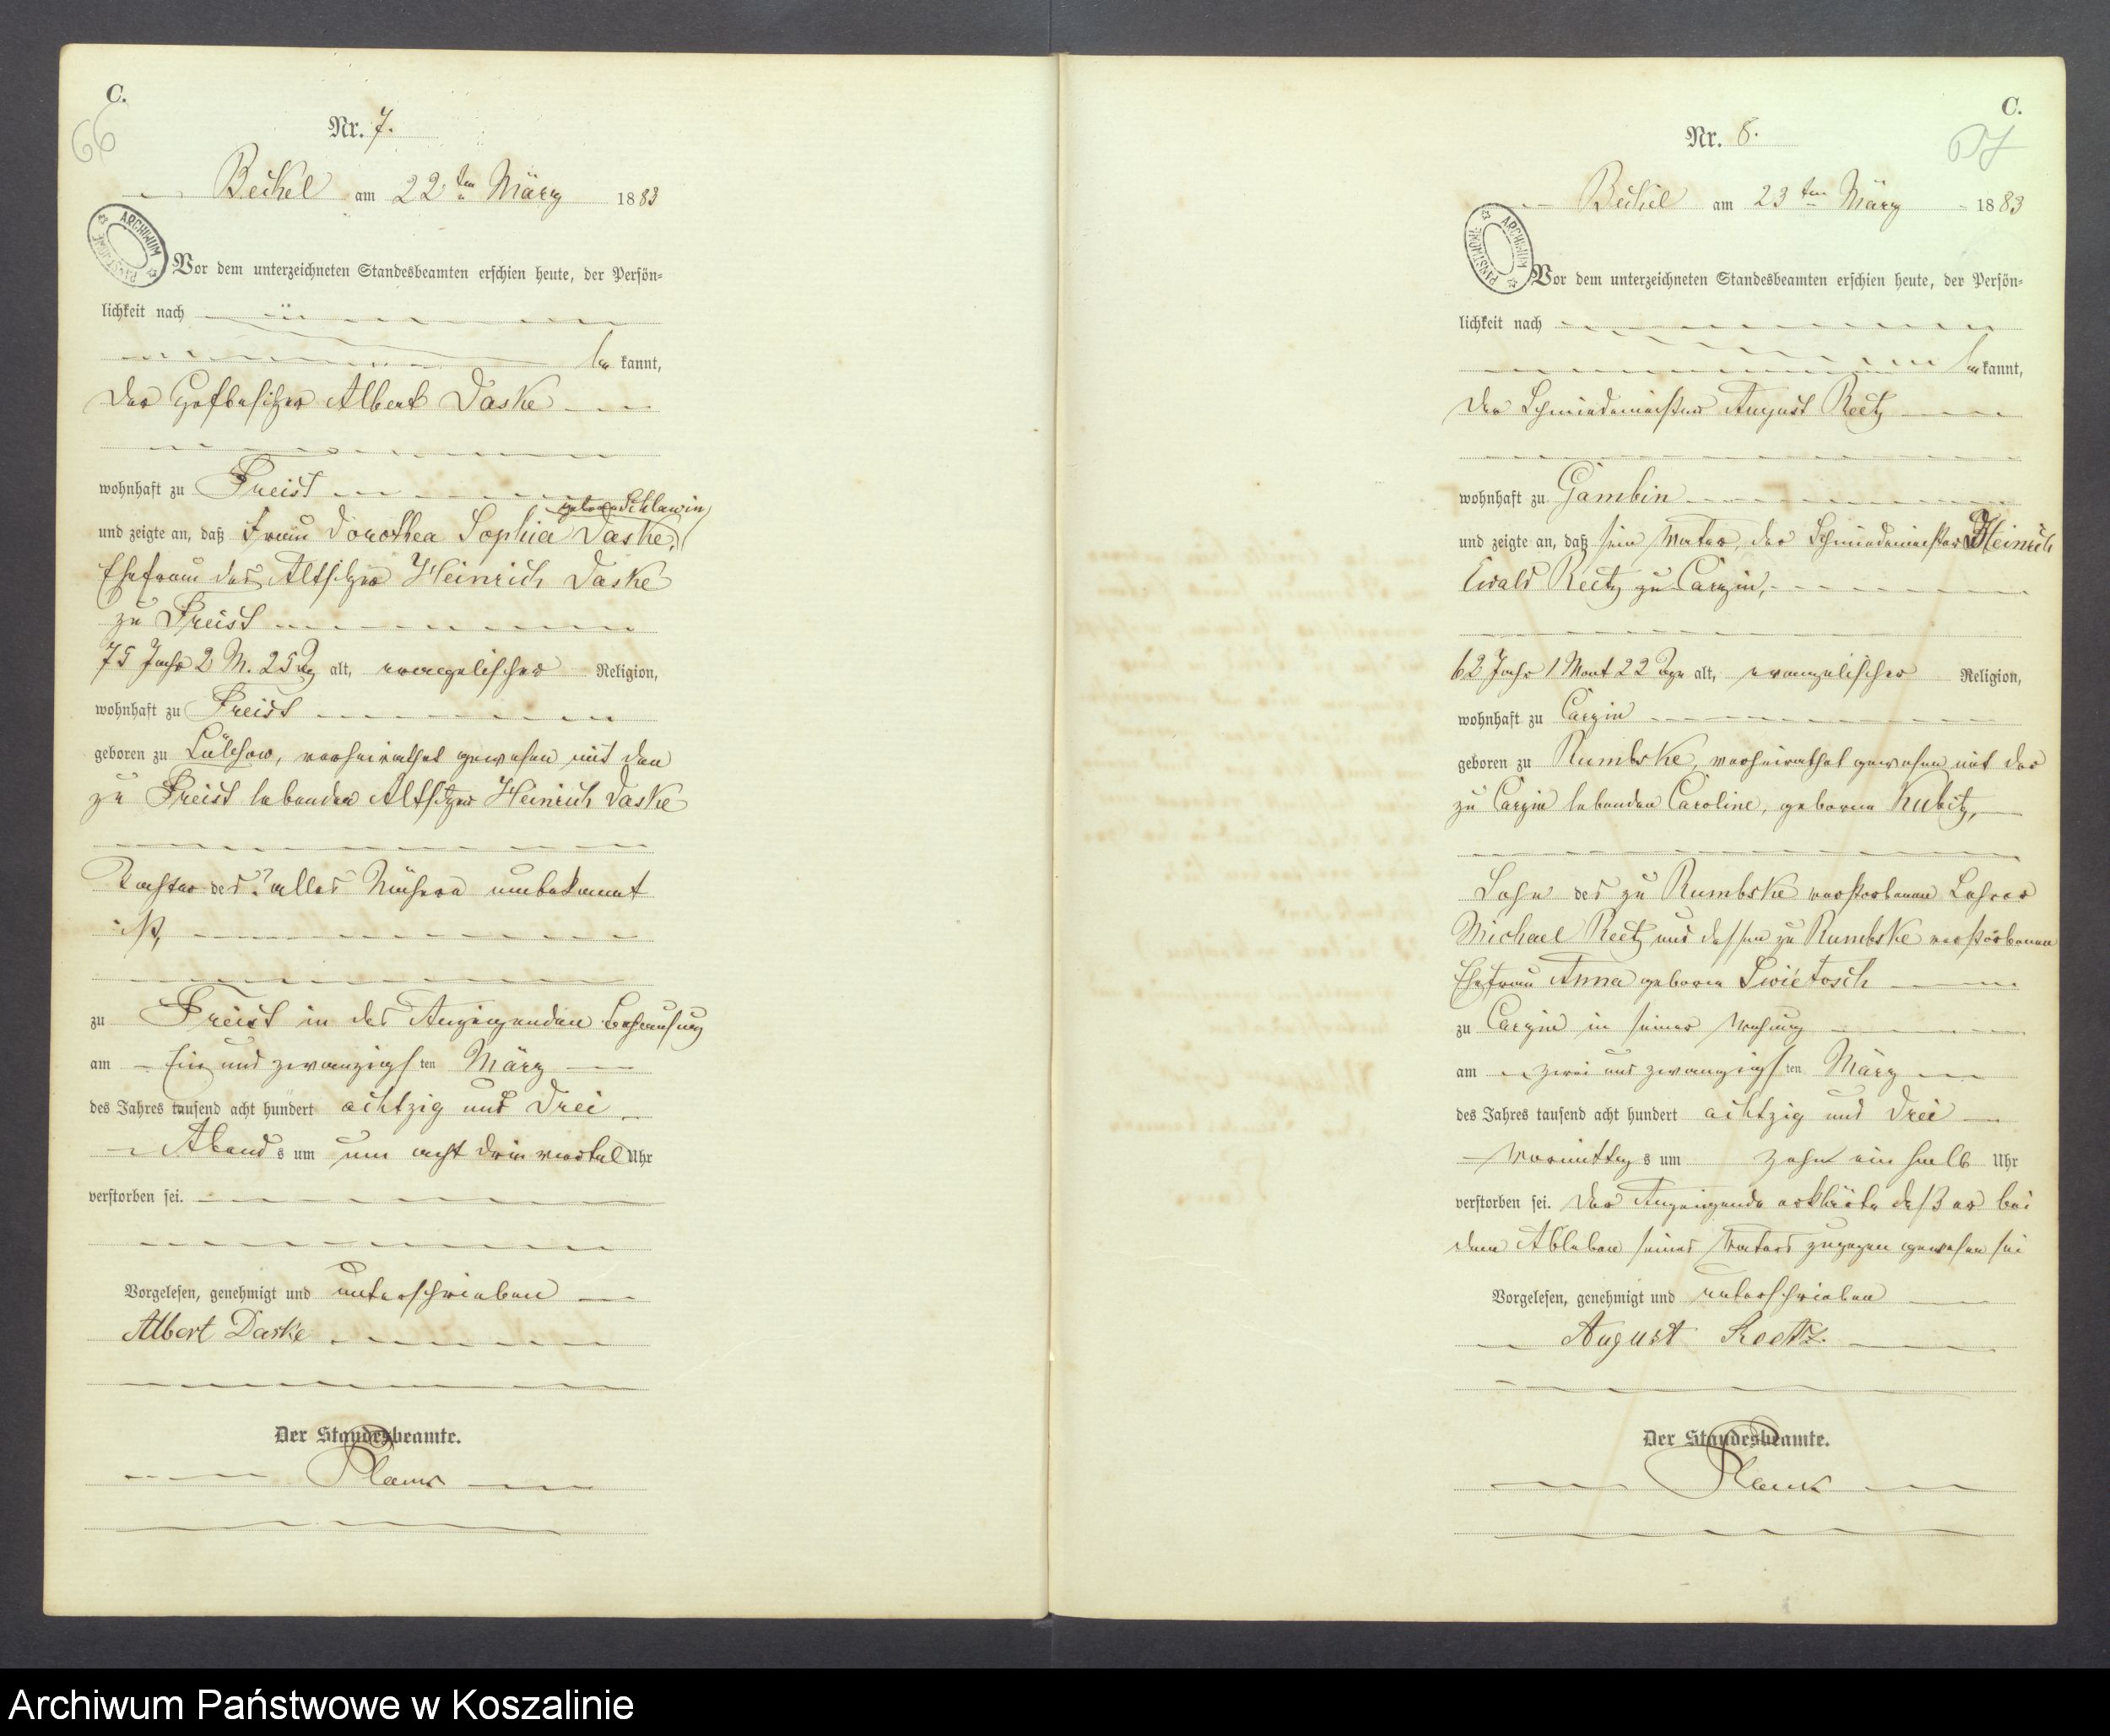 C.
66
Nr. 7.
Beckel am 22ten März 1883
ARCHIWUM PAŃSTWOWE
Vor dem unterzeichneten Standesbeamten erschien heute, der Persön-
lichkeit nach
be kannt,
der Hofbesitzer Albert Daske
wohnhaft zu Freist
geborne Schlawin,
und zeigte an, daß Frau Dorothea Sophia Daske,
Ehefrau des Altsitzer Heinrich Daske
zu Freist
75 Jahr 2 M. 25 Tg alt, evangelischer Religion,
wohnhaft zu Freist
geboren zu Lüllchow, verheirathet gewesen mit den
zu Freist lebenden Altsitzer Heinrich Daske
Tochter des ? alles Nähere unbekannt
ist,
zu Freist in des Anzeigenden Behausung
am Ein und zwanzigsten März
des Jahres tausend acht hundert achtzig und drei
Abends um um acht drei viertel Uhr
verstorben sei.
Vorgelesen, genehmigt und unterschrieben
Albert Daske
Der Standesbeamte.
C.
67
Nr. 8.
Beckel am 23ten März 1883
ARCHIWUM PAŃSTWOWE
Vor dem unterzeichneten Standesbeamten erschien heute, der Persön-
lichkeit nach
be kannt,
der Schmiedemeister August Reetz
wohnhaft zu Gambin
und zeigte an, daß sein Vater, der Schmiedemeister Heinrich
Ewald Reetz zu Carzin,
62 Jahr 1 Monat 22 Tage alt, evangelischer Religion,
wohnhaft zu Carzin
geboren zu Rumbske, verheirathet gewesen mit der
zu Carzin lebenden Caroline, geborne Kubitz,
Sohn des zu Rumbske verstorbenen Lehrer
Michael Reetz und dessen zu Rumbske verstorbenen
Ehefrau Anna geborne Swietosch
zu Carzin in seiner Wohnung
am zwei und zwanzigsten März
des Jahres tausend acht hundert achtzig und drei
Vormittags um zehn ein halb Uhr
verstorben sei. Der Anzeigende erklärte daß er bei
dem Ableben seines Vaters zugegen gewesen sei
Vorgelesen, genehmigt und unterschrieben
August Reetz.
Der Standesbeamte.
Archiwum Państwowe w Koszalinie